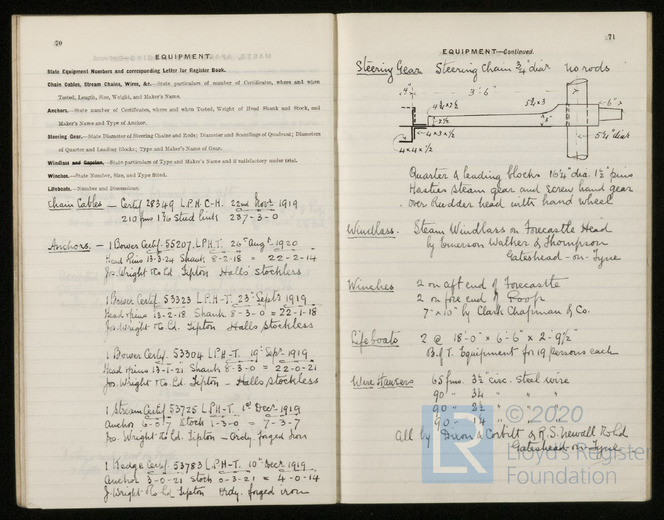 70
EQUIPMENT.
State Equipment Numbers and corresponding Letter for Register Book.
Chain Cables, Stream Chains, Wires, &c.—State particulars of number of Certificates, where and when
Tested, Length, Size, Weight, and Maker's Name.
Anchors.—State number of Certificates, where and when Tested, Weight of Head Shank and Stock, and
Maker's Name and Type of Anchor.
Steering Gear.—State Diameter of Steering Chains and Rods; Diameter and Scantlings of Quadrant; Diameters
of Quarter and Leading Blocks; Type and Maker's Name of Gear.
Windlass and Capstan.—State particulars of Type and Maker's Name and if satisfactory under trial.
Winches.—State Number, Size, and Type fitted.
Lifeboats.—Number and Dimensions.
Chain Cables – Certif 28349 L.P.H.C-H. 22nd Novr 1919
210 fms 1 9/16 Stud links 237-3-0
Anchors. – 1 Bower Certif. 55207. L.P.H.T. 26th Augt 1920
Head & pins 13-3-24 Shank 8-2-18 = 22-2-14
Jos. Wright & Co Ld. Tipton Halls Stockless
1 Bower Certif 53323 L.P.H-T. 23rd Septr 1919
Head & pins 13-2-18 Shank 8-3-0 = 22-1-18
Jos. Wright & Co Ld. Tipton Halls Stockless
1 Bower Certif. 53304 L.P.H-T. 19th Septr 1919
Head & pins 13-1-21 Shank 8-3-0 = 22-0-21
Jos. Wright & Co Ld. Tipton – Halls Stockless
1 Stream Certif 53725 L.P.H-T. 1st Decr 1919
Anchor 6-0-7 Stock 1-3-0 = 7-3-7
Jos. Wright & Co Ld. Tipton – Ordy forged Iron
1 Kedge Certif 53783 L.P.H-T. 10th Decr 1919
Anchor 3-0-21 Stock 0-3-21 = 4-0-14
J. Wright & Co Ld Tipton Ordy. forged iron
71
EQUIPMENT—Continued.
Steering Gear Steering Chain 3/4" diar no rods
3'-6"
5 1/2 x 3
6"
5 1/4" diar
4 x 3 x 1/2
4 x 4 x 1/2
Quarter & leading blocks 10 1/4" dia. 1 1/2" pins
Hasties steam gear and screw hand gear
over Rudder head with hand wheel
Windlass. Steam Windlass on Forecastle Head
by Emerson Walker & Thompson
Gateshead-on-Tyne
Winches 2 on aft end of Forecastle
2 on fore end of Poop
7" x 10" by Clark Chapman & Co.
Lifeboats 2 @ 18'-0" x 6'-6" x 2'-9 1/2"
B of T. Equipment for 19 persons each
Wire Hawsers 65 fms. 3 1/2" circ. steel wire
90 " 3 1/4 " " "
90 " 2 1/2 " " "
90 " 1 3/4 " " "
all by Dixon & Corbitt & R. S. Newall & Co Ld
Gateshead-on-Tyne
LR
© 2020
Lloyd's Register
Foundation